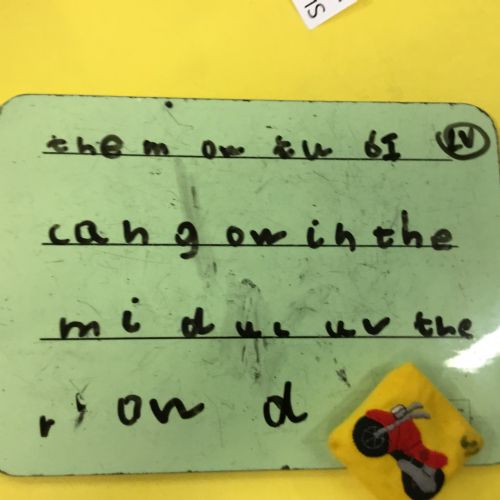 the m ow tu bI
can g ow in the
m i d uu uv the
r ow d